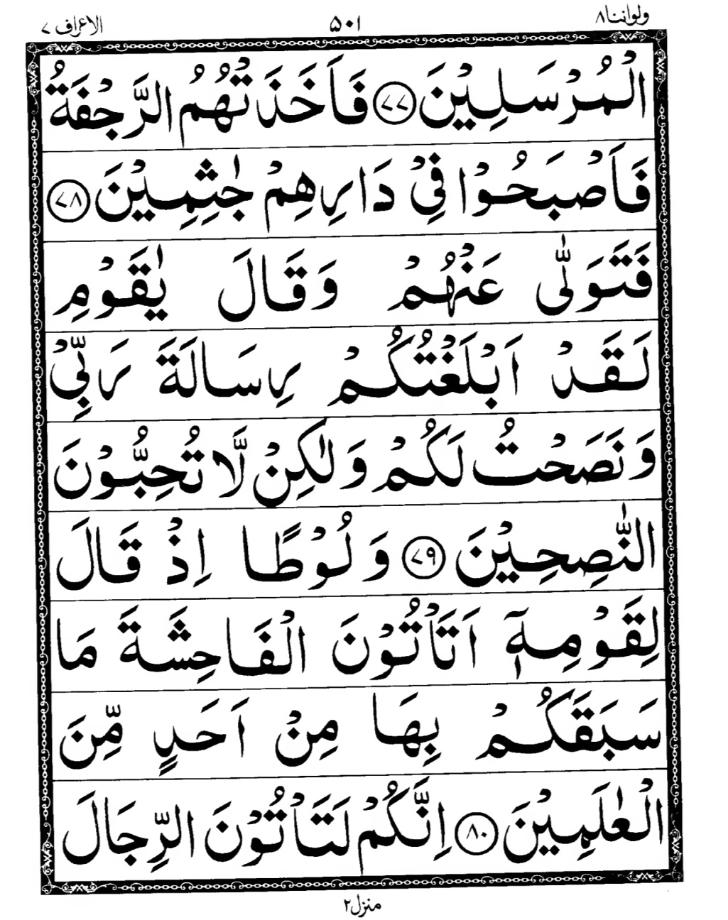 ولواننا ۸ ۵۰۱ الاعراف ۷
الْمُرْسَلِيْنَ ﴿۷۷﴾ فَاَخَذَتْهُمُ الرَّجْفَةُ
فَاَصْبَحُوْا فِيْ دَارِهِمْ جٰثِمِيْنَ ﴿۷۸﴾
فَتَوَلّٰى عَنْهُمْ وَقَالَ يٰقَوْمِ
لَقَدْ اَبْلَغْتُكُمْ رِسَالَةَ رَبِّيْ
وَنَصَحْتُ لَكُمْ وَلٰكِنْ لَّا تُحِبُّوْنَ
النّٰصِحِيْنَ ﴿۷۹﴾ وَلُوْطًا اِذْ قَالَ
لِقَوْمِهٖٓ اَتَاْتُوْنَ الْفَاحِشَةَ مَا
سَبَقَكُمْ بِهَا مِنْ اَحَدٍ مِّنَ
الْعٰلَمِيْنَ ﴿۸۰﴾ اِنَّكُمْ لَتَاْتُوْنَ الرِّجَالَ
منزل ۲